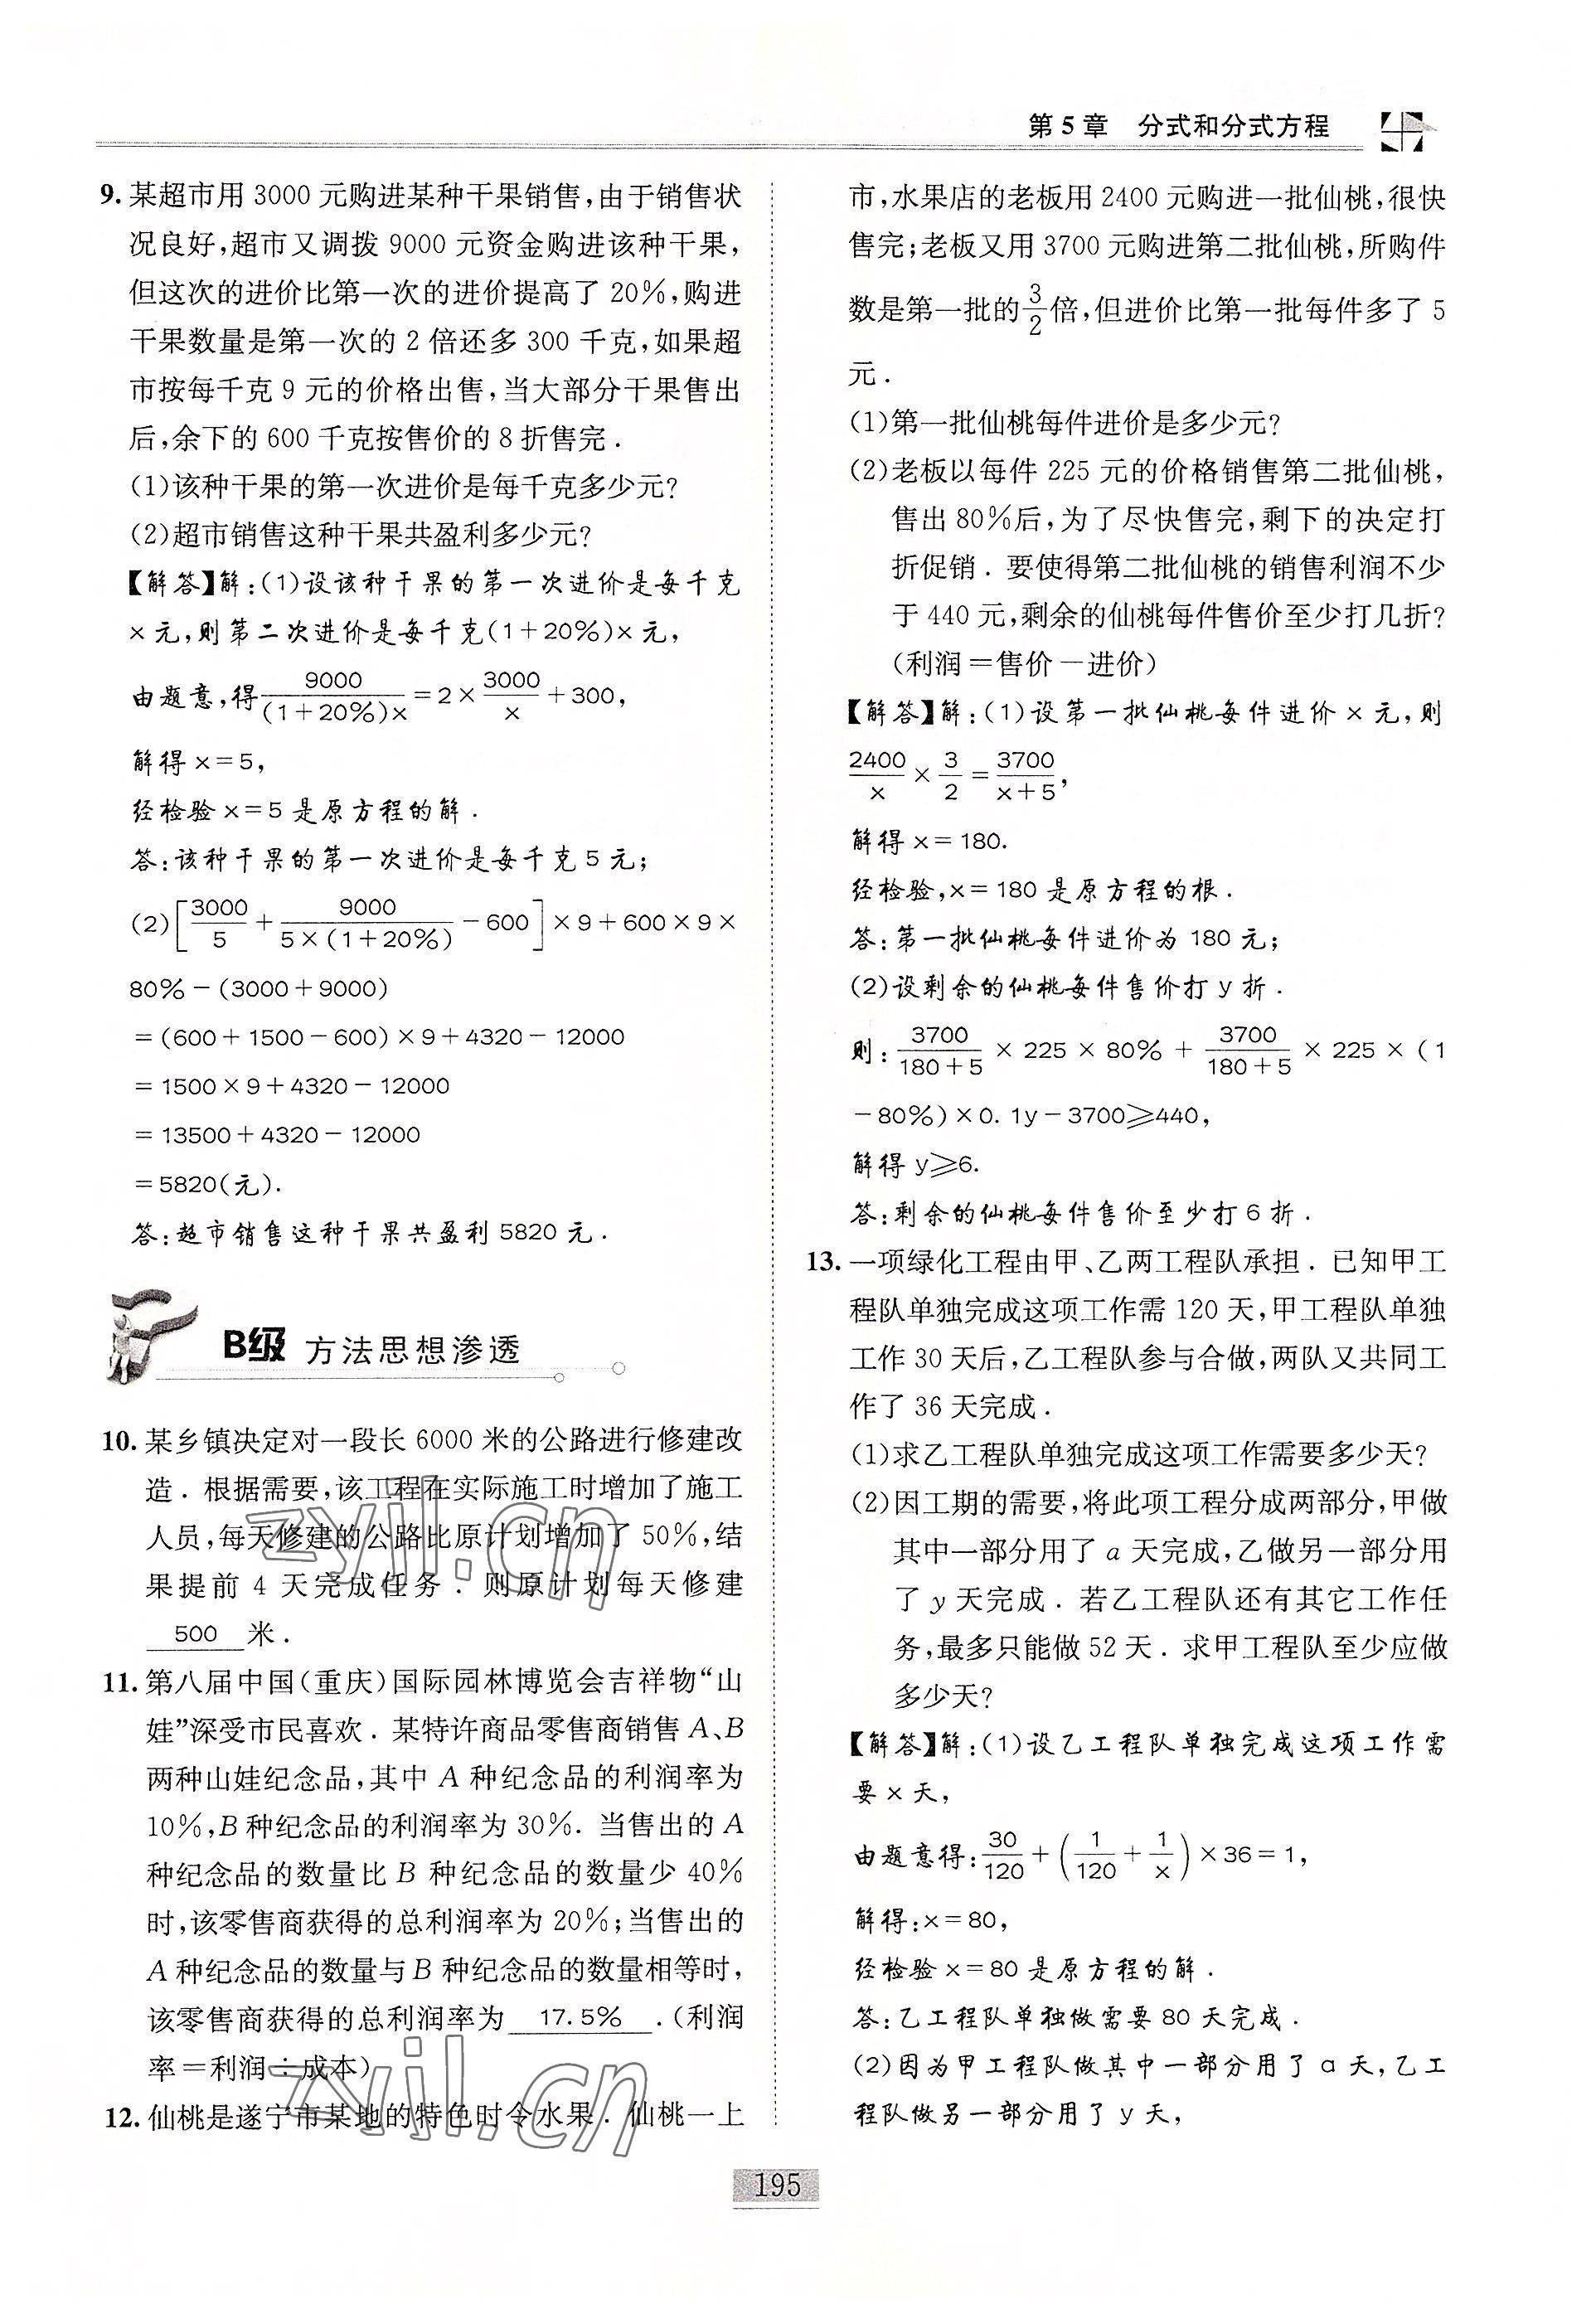 第5章 分式和分式方程
9. 某超市用 3000 元购进某种干果销售,由于销售状
况良好,超市又调拨 9000 元资金购进该种干果,
但这次的进价比第一次的进价提高了 20%,购进
干果数量是第一次的 2 倍还多 300 千克,如果超
市按每千克 9 元的价格出售,当大部分干果售出
后,余下的 600 千克按售价的 8 折售完.
(1)该种干果的第一次进价是每千克多少元?
(2)超市销售这种干果共盈利多少元?
【解答】解:(1)设该种干果的第一次进价是每千克
x 元,则第二次进价是每千克(1+20%)x 元,
由题意,得 9000/((1+20%)x) = 2× 3000/x +300,
解得 x=5,
经检验 x=5 是原方程的解.
答:该种干果的第一次进价是每千克 5 元;
(2)[3000/5 + 9000/(5×(1+20%)) −600]×9+600×9×
80%−(3000+9000)
=(600+1500−600)×9+4320−12000
=1500×9+4320−12000
=13500+4320−12000
=5820(元).
答:超市销售这种干果共盈利 5820 元.
B级 方法思想渗透
10. 某乡镇决定对一段长 6000 米的公路进行修建改
造. 根据需要,该工程在实际施工时增加了施工
人员,每天修建的公路比原计划增加了 50%,结
果提前 4 天完成任务. 则原计划每天修建
500 米.
11. 第八届中国(重庆)国际园林博览会吉祥物“山
娃”深受市民喜欢. 某特许商品零售商销售 A、B
两种山娃纪念品,其中 A 种纪念品的利润率为
10%,B 种纪念品的利润率为 30%. 当售出的 A
种纪念品的数量比 B 种纪念品的数量少 40%
时,该零售商获得的总利润率为 20%;当售出的
A 种纪念品的数量与 B 种纪念品的数量相等时,
该零售商获得的总利润率为 17.5% .(利润
率=利润÷成本)
12. 仙桃是遂宁市某地的特色时令水果. 仙桃一上
市,水果店的老板用 2400 元购进一批仙桃,很快
售完;老板又用 3700 元购进第二批仙桃,所购件
数是第一批的 3/2 倍,但进价比第一批每件多了 5
元.
(1)第一批仙桃每件进价是多少元?
(2)老板以每件 225 元的价格销售第二批仙桃,
售出 80%后,为了尽快售完,剩下的决定打
折促销. 要使得第二批仙桃的销售利润不少
于 440 元,剩余的仙桃每件售价至少打几折?
(利润=售价−进价)
【解答】解:(1)设第一批仙桃每件进价 x 元,则
2400/x × 3/2 = 3700/(x+5),
解得 x=180.
经检验,x=180 是原方程的根.
答:第一批仙桃每件进价为 180 元;
(2)设剩余的仙桃每件售价打 y 折.
则: 3700/(180+5) × 225 × 80% + 3700/(180+5) × 225 × (1
−80%)×0.1y−3700⩾440,
解得 y⩾6.
答:剩余的仙桃每件售价至少打 6 折.
13. 一项绿化工程由甲、乙两工程队承担. 已知甲工
程队单独完成这项工作需 120 天,甲工程队单独
工作 30 天后,乙工程队参与合做,两队又共同工
作了 36 天完成.
(1)求乙工程队单独完成这项工作需要多少天?
(2)因工期的需要,将此项工程分成两部分,甲做
其中一部分用了 a 天完成,乙做另一部分用
了 y 天完成. 若乙工程队还有其它工作任
务,最多只能做 52 天. 求甲工程队至少应做
多少天?
【解答】解:(1)设乙工程队单独完成这项工作需
要 x 天,
由题意得: 30/120 + (1/120 + 1/x) ×36=1,
解得:x=80,
经检验 x=80 是原方程的解.
答:乙工程队单独做需要 80 天完成.
(2)因为甲工程队做其中一部分用了 a 天,乙工
程队做另一部分用了 y 天,
195
zyjl.cn
zyjl.cn